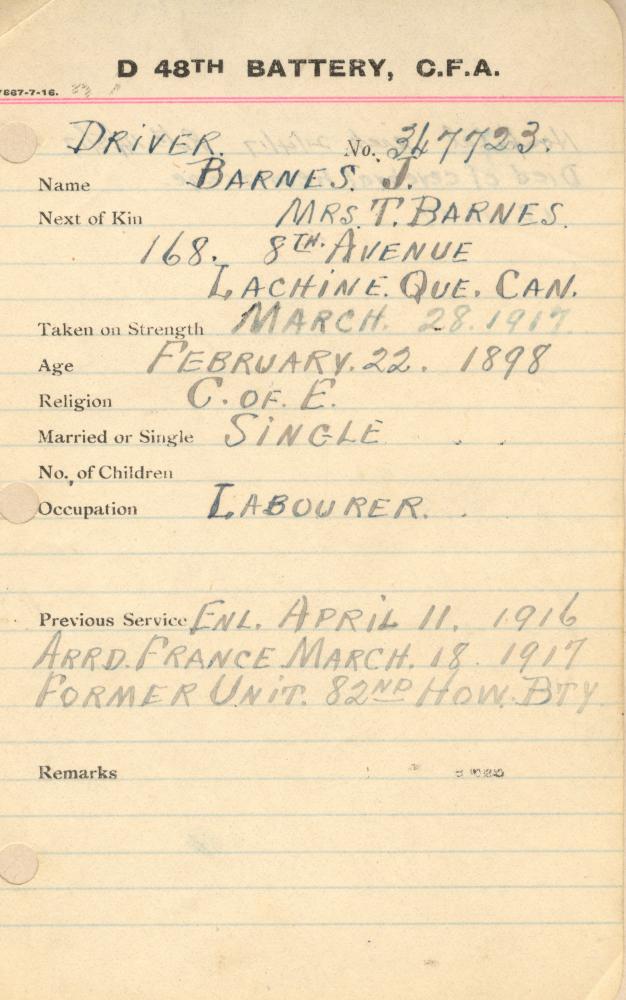 D 48TH BATTERY, C.F.A.
7667-7-16.
DRIVER. No. 347723.
Name BARNES. J.
Next of Kin MRS. T. BARNES.
168. 8TH. AVENUE
LACHINE. QUE. CAN.
Taken on Strength MARCH. 28. 1917.
Age FEBRUARY. 22. 1898
Religion C. OF. E.
Married or Single SINGLE
No. of Children
Occupation LABOURER.
Previous Service ENL. APRIL 11. 1916
ARRD. FRANCE MARCH. 18. 1917
FORMER UNIT. 82ND HOW. BTY.
Remarks